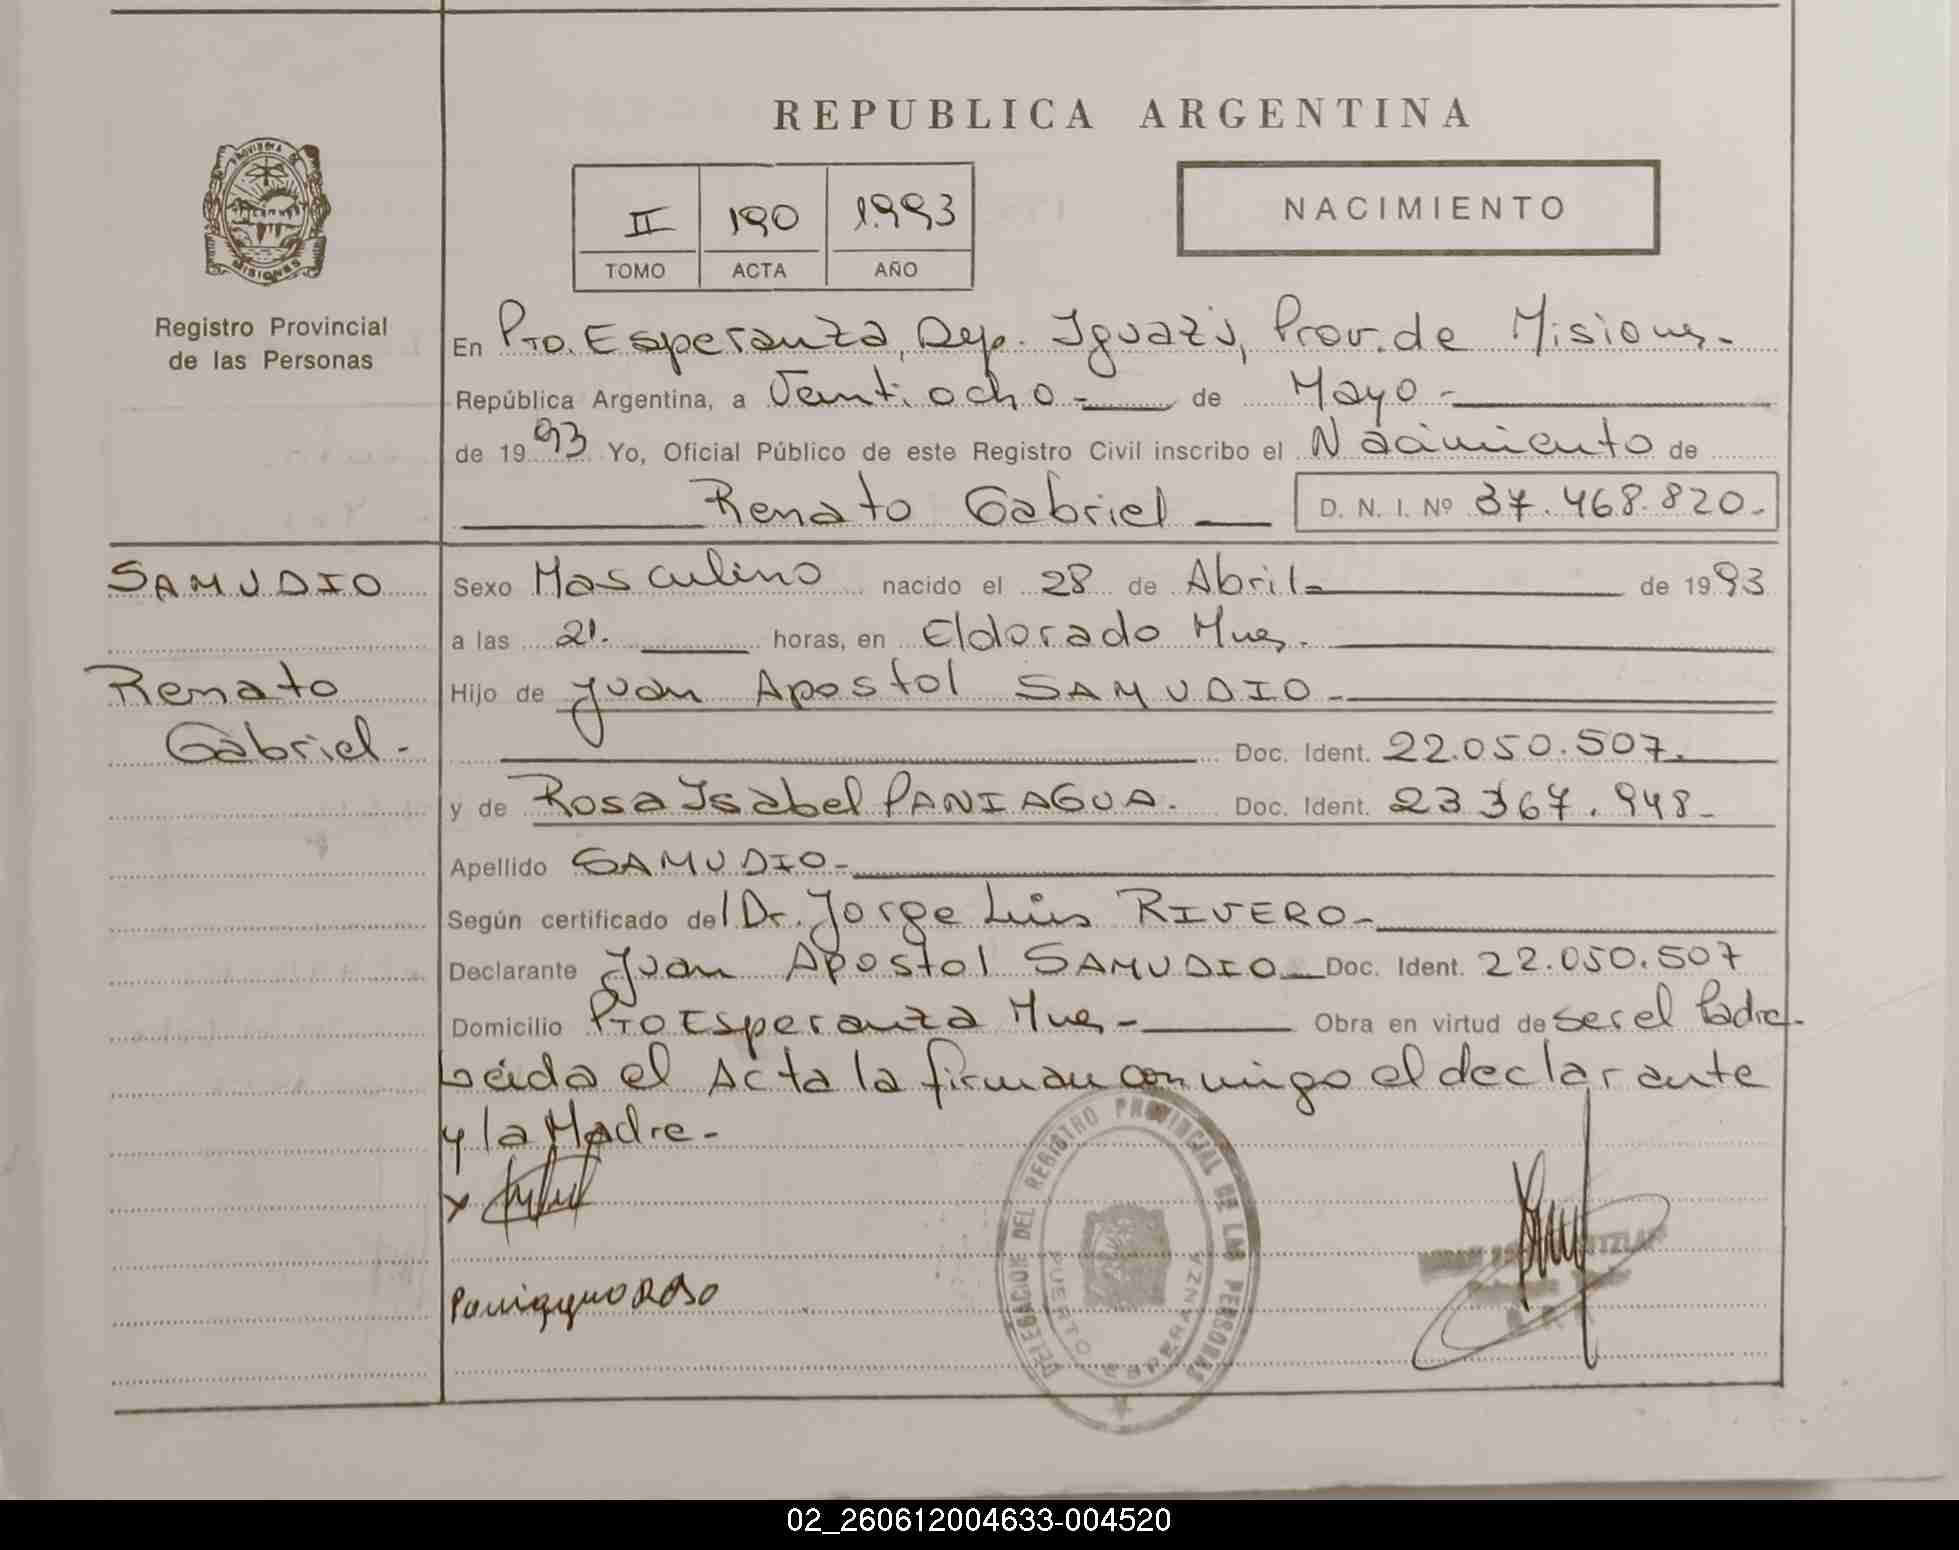 REPUBLICA ARGENTINA
PROVINCIA DE
MISIONES
Registro Provincial
de las Personas
II 190 1993
TOMO ACTA AÑO
NACIMIENTO
En Pto. Esperanza, Dep. Iguazú, Prov. de Misiones.
República Argentina, a Veintiocho de Mayo
de 1993 Yo, Oficial Público de este Registro Civil inscribo el Nacimiento de
Renato Gabriel D. N. I. Nº 37.468.820.
SAMUDIO
Renato
Gabriel.
Sexo Masculino nacido el 28 de Abril de 1993
a las 21. horas, en Eldorado Mnes.
Hijo de Juan Apostol SAMUDIO
Doc. Ident. 22.050.507.
y de Rosa Isabel PANIAGUA. Doc. Ident. 23 367.948
Apellido SAMUDIO
Según certificado del Dr. Jorge Luis RIVERO
Declarante Juan Apostol SAMUDIO Doc. Ident. 22.050.507
Domicilio Pto Esperanza Mnes Obra en virtud de ser el Padre.
Leida el Acta la firman conmigo el declarante
y la Madre.
x
Paniagua Rosa
DELEGACION DEL REGISTRO PROVINCIAL DE LAS PERSONAS
PUERTO ESPERANZA
02_260612004633-004520